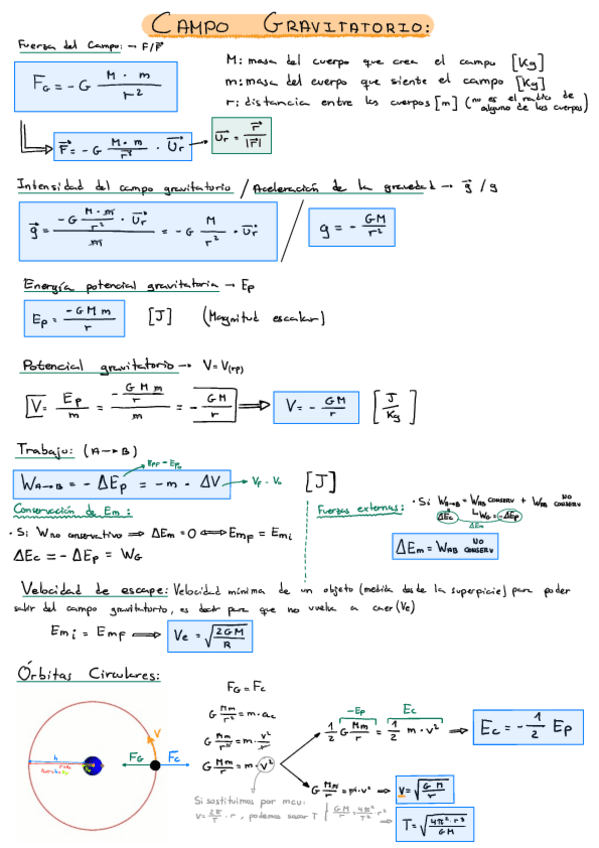 CAMPO GRAVITATORIO:
Fuerza del Campo: → F/F⃗
F_G = - G M · m / r²
M: masa del cuerpo que crea el campo [Kg]
m: masa del cuerpo que siente el campo [Kg]
r: distancia entre los cuerpos [m] (no es el radio de alguno de los cuerpos)
F⃗ = - G M · m / r² · U⃗r → U⃗r = r⃗ / |r⃗|
Intensidad del campo gravitatorio / Aceleración de la gravedad → g⃗ / g
g⃗ = (- G M · m / r² · U⃗r) / m = - G M / r² · U⃗r / g = - GM / r²
Energía potencial gravitatoria → Ep
Ep = - G M m / r [J] (Magnitud escalar)
Potencial gravitatorio → V = V(rp)
V = Ep / m = (- G M m / r) / m = - GM / r ⇒ V = - GM / r [J / Kg]
Trabajo: (A → B)
W A→B = - ΔEp = - m · ΔV → Vf - Vo [J]
Conservación de Em:
· Si W no conservativo ⇒ ΔEm = 0 ⇔ Em F = Em i
ΔEc = - ΔEp = W G
Fuerzas externas: · Si W A→B = W AB CONSERV + W AB NO CONSERV
ΔEc W G = - ΔEp
ΔEm
ΔEm = W AB NO CONSERV
Velocidad de escape: Velocidad mínima de un objeto (medida desde la superpicie) para poder
salir del campo gravitatorio, es decir para que no vuelva a caer (Ve)
Em i = Em F ⇒ Ve = √(2GM / R)
Órbitas Circulares:
F G = F c
G Mm / r² = m · a c
G Mm / r² = m · v² / r
G Mm / r = m · v²
-Ep Ec
1/2 G Mm / r = 1/2 m · v² ⇒ Ec = - 1/2 Ep
G Mm / r = m · v² ⇒ V = √(G M / r)
Si sustituimos por mcu:
v = 2π / T · r, podemos sacar T GM / r = 4π² / T² · r² T = √(4π² · r³ / GM)
V
h
F G
F c